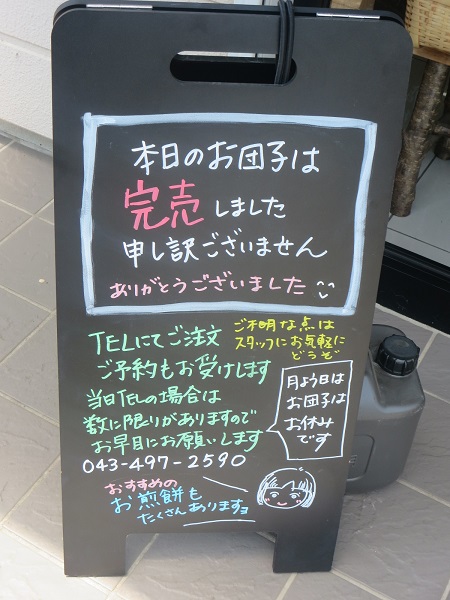 本日のお団子は
完売しました
申し訳ございません
ありがとうございました
TELにてご注文
ご予約もお受けします
当日TELの場合は
数に限りがありますので
お早目にお願いします
043-497-2590
ご不明な点は
スタッフにお気軽に
どうぞ
月よう日は
お団子は
お休み
です
おすすめの
お煎餅も
たくさんありますヨ